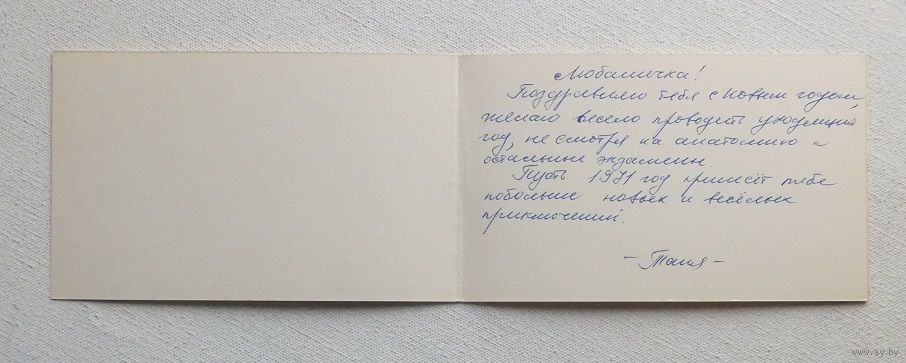 Любашичка!
Поздравляю тебя с Новым годом,
желаю весело проводить уходящий
год, не смотря на анатомию и
остальные экзамены.
Пусть 1971 год принесёт тебе
побольше новых и весёлых
приключений.
- Таня -
www.ay.by